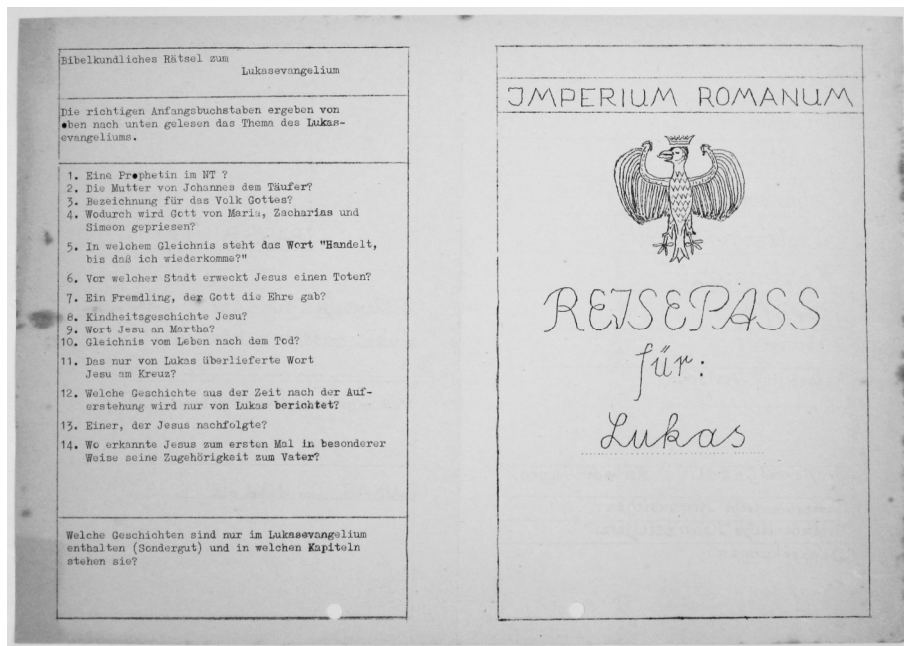 Bibelkundliches Rätsel zum
Lukasevangelium
Die richtigen Anfangsbuchstaben ergeben von
oben nach unten gelesen das Thema des Lukas-
evangeliums.
1. Eine Prophetin im NT ?
2. Die Mutter von Johannes dem Täufer?
3. Bezeichnung für das Volk Gottes?
4. Wodurch wird Gott von Maria, Zacharias und
Simeon gepriesen?
5. In welchem Gleichnis steht das Wort "Handelt,
bis daß ich wiederkomme?"
6. Vor welcher Stadt erweckt Jesus einen Toten?
7. Ein Fremdling, der Gott die Ehre gab?
8. Kindheitsgeschichte Jesu?
9. Wort Jesu an Martha?
10. Gleichnis vom Leben nach dem Tod?
11. Das nur von Lukas überlieferte Wort
Jesu am Kreuz?
12. Welche Geschichte aus der Zeit nach der Auf-
erstehung wird nur von Lukas berichtet?
13. Einer, der Jesus nachfolgte?
14. Wo erkannte Jesus zum ersten Mal in besonderer
Weise seine Zugehörigkeit zum Vater?
Welche Geschichten sind nur im Lukasevangelium
enthalten (Sondergut) und in welchen Kapiteln
stehen sie?
IMPERIUM ROMANUM
REISEPASS
für:
Lukas